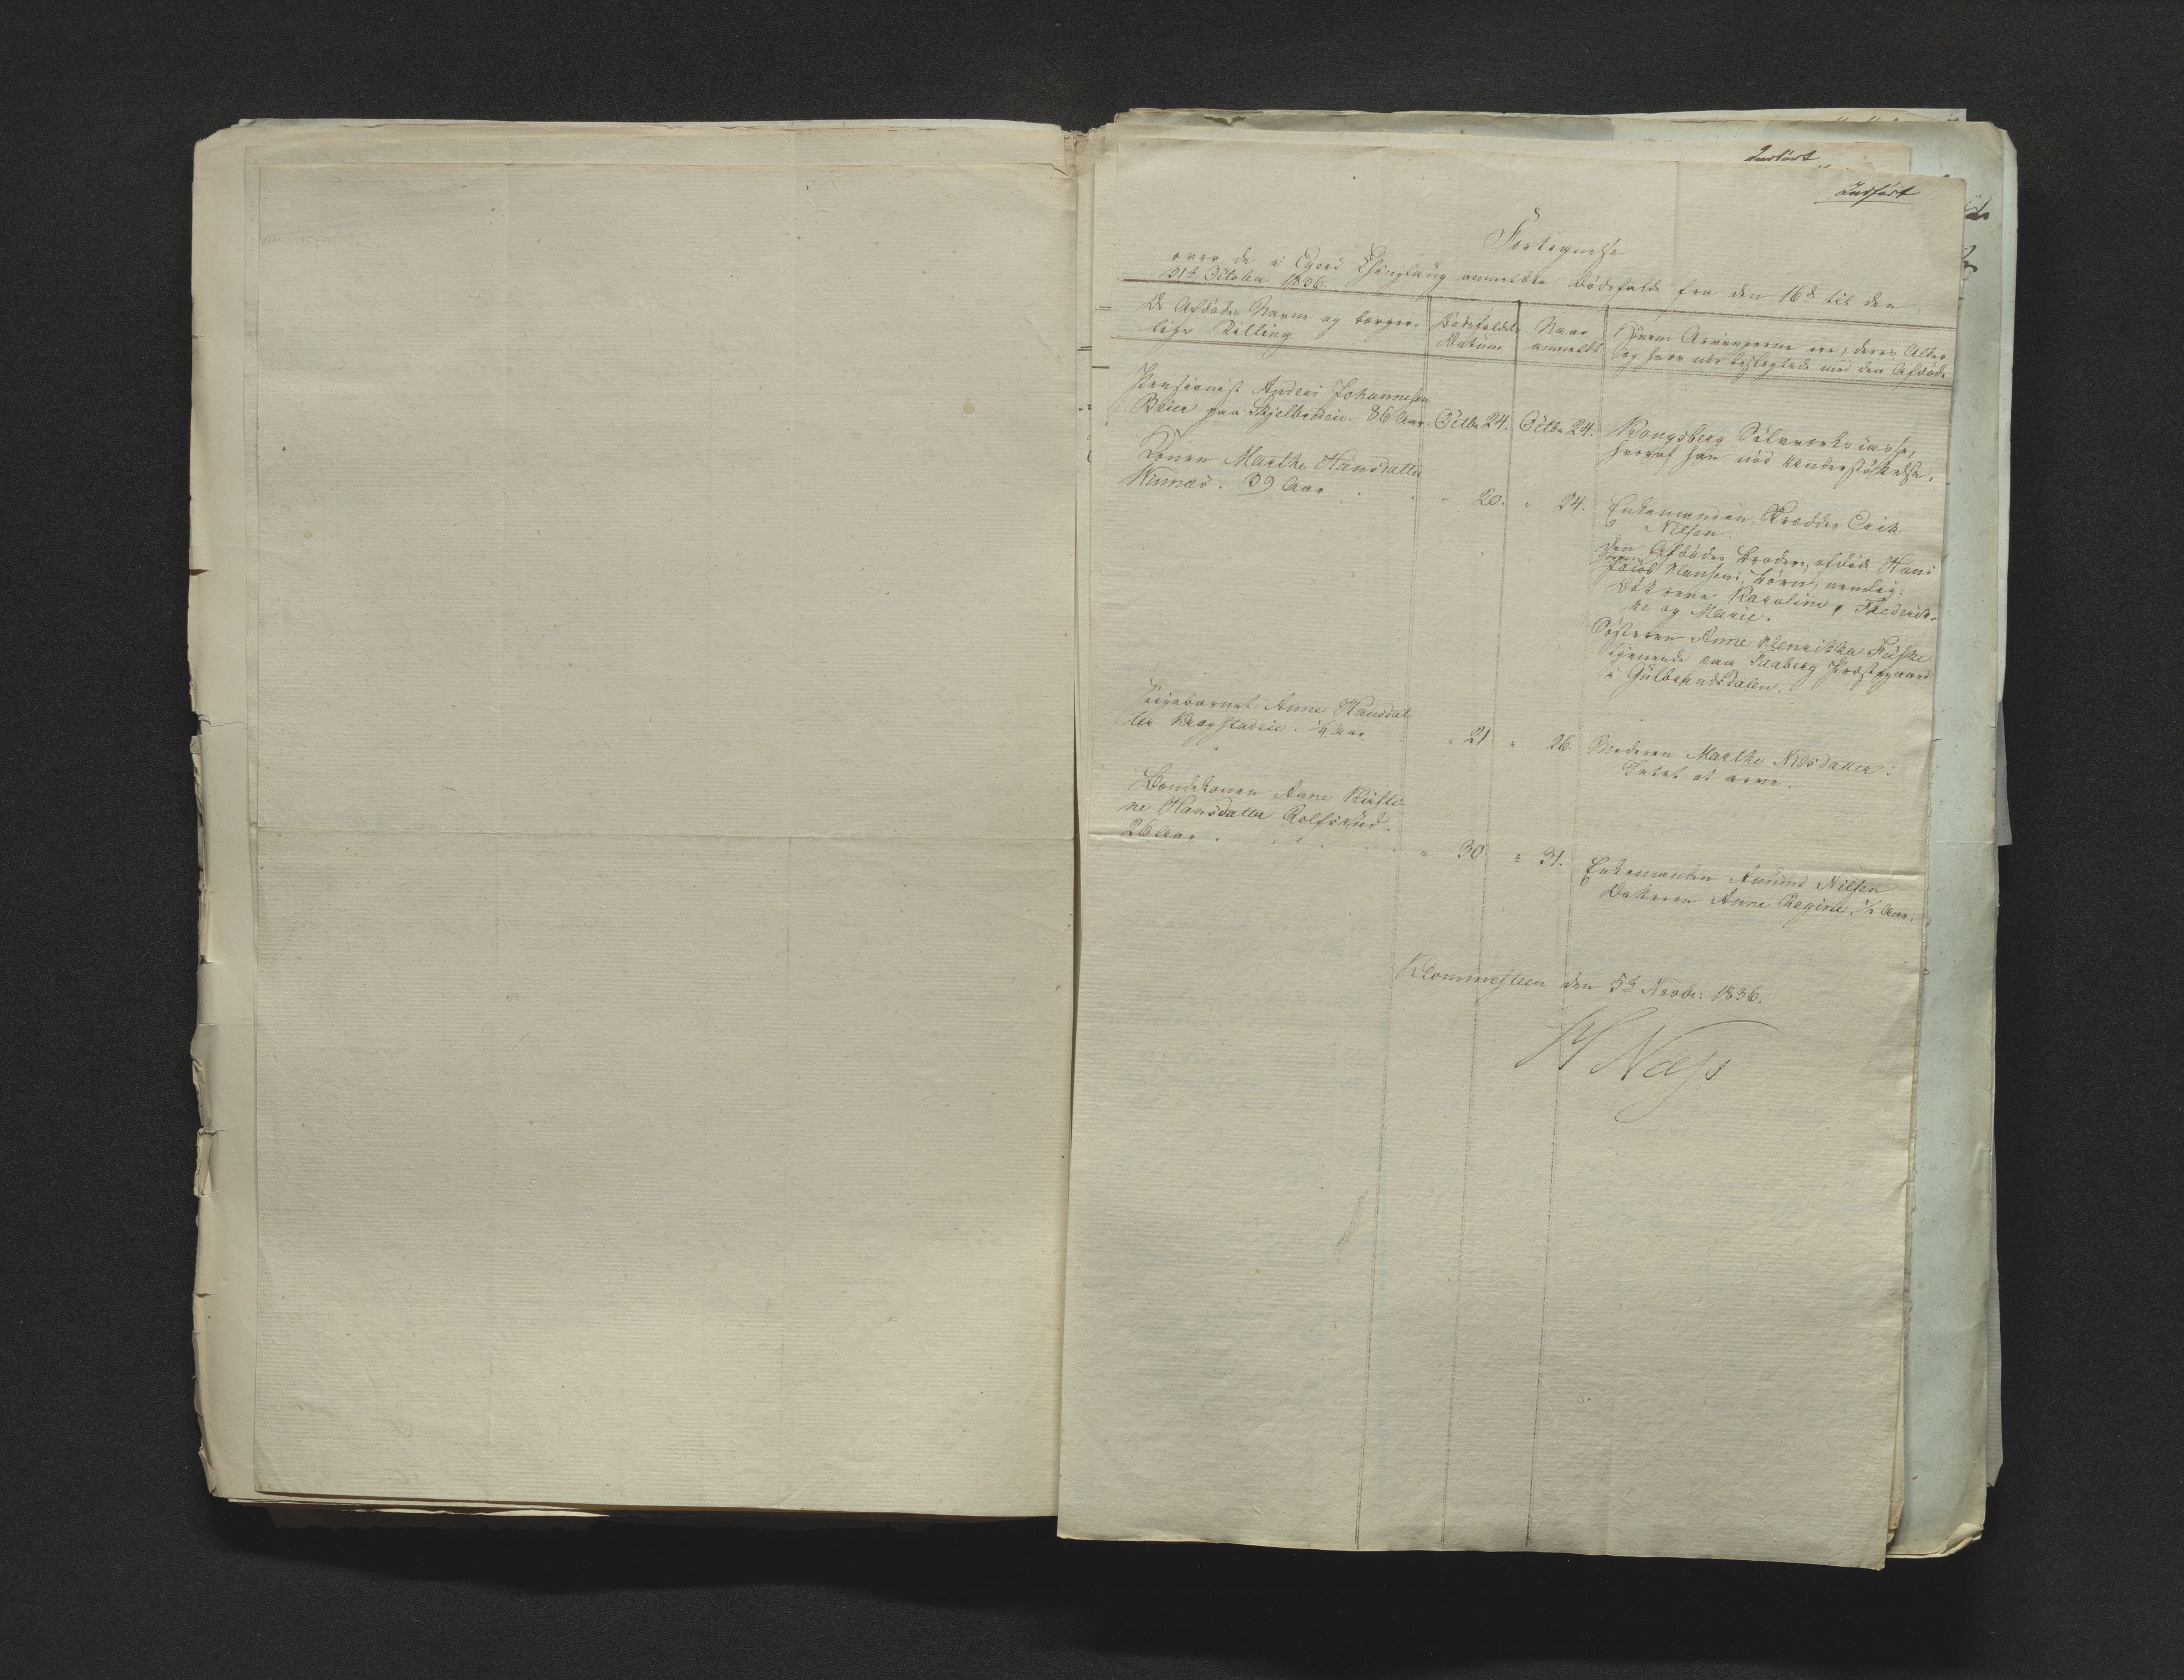 Indført
Indført
Fortegnelse
over de i Egers Thinglaug anmeldte Dødsfald fra den 16de til den
31te October 1836.
De Afdødes Navne og borger-
lige Stilling
Dødsfaldets
Datum
Naar
anmeldt
Hvem Arvingerne ere, deres Alder
og hvor nær beslægtede med den Afdøde
Pensionist Anders Johannesen
Beier paa Skjelbredeie. 86 Aar. Octbr 24. Octbr 24. Kongsberg Sølvværks Casse,
hvoraf han nød Understøttelse.
Konen Marthe Hansdatter
Himnes. 39 Aar . . " 20. " 24. Enkemanden, Skrædder Erik
Nilsen.
Den Afdødes Broder, afdød Hans
Jacob Hansens Børn, nemlig:
Døttrene Karoline, Frederik-
ke og Marie.
Søsteren Anne Henrikka Fliske
tjenende paa Faaberg Præstegaard
i Gulbrandsdalen.
Pigebarnet Anne Hansdat
ter Krogstadeie. 1/2 Aar " 21 " 26. Moderen Marthe Nilsdatter.
Intet at arve.
Bondekonen Anne Kirsti-
ne Hansdatter Rolfsrud.
26 Aar . . . . " 30. " 31. Enkemanden Amund Nilsen
Datteren Anne Regine, 1/2 Aar.
Klommesteen den 5te Novbr: 1836.
H Næss